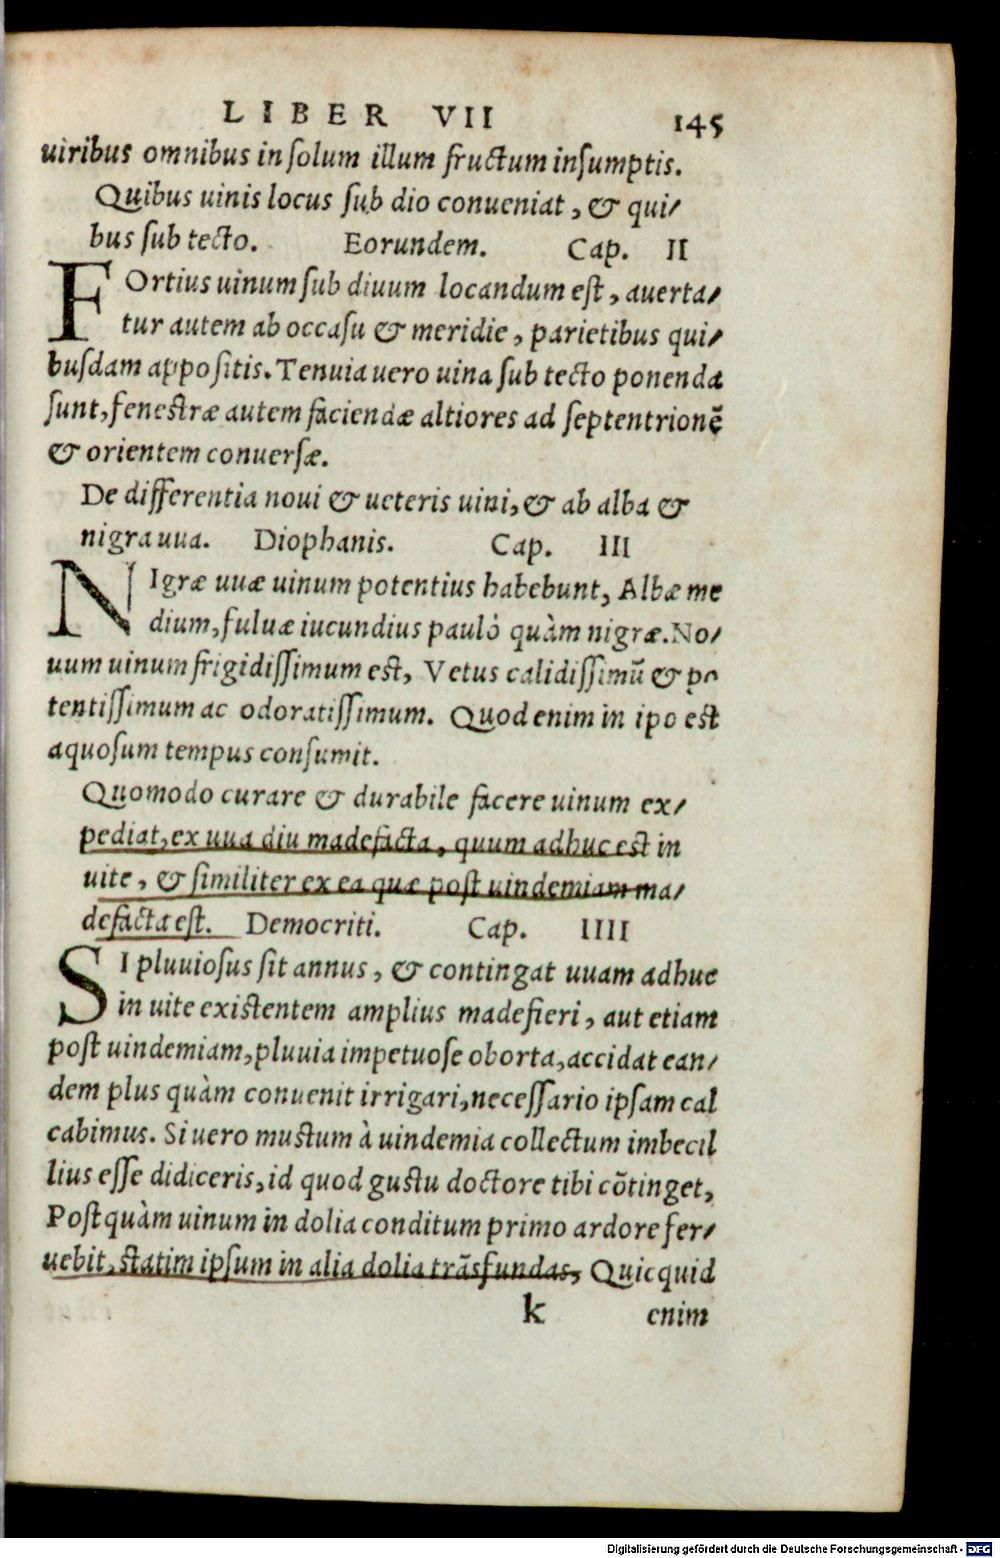 LIBER VII 145
uiribus omnibus in ſolum illum fructum inſumptis.
Quibus uinis locus ſub dio conueniat, & qui/
bus ſub tecto. Eorundem. Cap. II
FOrtius uinum ſub diuum locandum eſt, auerta/
tur autem ab occaſu & meridie, parietibus qui/
buſdam appoſitis. Tenuia uero uina ſub tecto ponenda
ſunt, feneſtræ autem faciendæ altiores ad ſeptentrionē
& orientem conuerſæ.
De differentia noui & ueteris uini, & ab alba &
nigra uua. Diophanis. Cap. III
NIgræ uuæ uinum potentius habebunt, Albæ me
dium, fuluæ iucundius paulò quàm nigræ. No/
uum uinum frigidiſſimum eſt, Vetus calidiſſimū & po
tentiſſimum ac odoratiſſimum. Quod enim in ipo eſt
aquoſum tempus conſumit.
Quomodo curare & durabile facere uinum ex/
pediat, ex uua diu madefacta, quum adhuc eſt in
uite, & ſimiliter ex ea quæ poſt uindemiam ma/
defacta eſt. Democriti. Cap. IIII
SI pluuioſus ſit annus, & contingat uuam adhuc
in uite exiſtentem amplius madefieri, aut etiam
poſt uindemiam, pluuia impetuoſe oborta, accidat ean/
dem plus quàm conuenit irrigari, neceſſario ipſam cal
cabimus. Si uero muſtum à uindemia collectum imbecil
lius eſſe didiceris, id quod guſtu doctore tibi cōtinget,
Poſtquàm uinum in dolia conditum primo ardore fer/
uebit, ſtatim ipſum in alia dolia trāsfundas, Quicquid
k enim
Digitalisierung gefördert durch die Deutsche Forschungsgemeinschaft - DFG